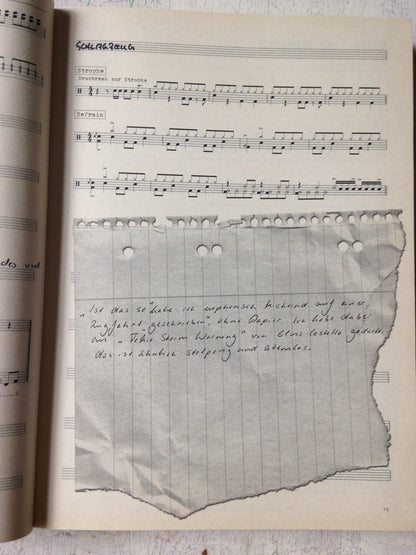 SCHLAGZEUG
Strophe
Drumbreak zur Strophe
Refrain
des und
"Ist das so" habe ich euphorisch kichernd auf einer
Zugfahrt "geschrieben", ohne Papier. Ich habe dabei
an "Tokio Storm Warning" von Elvis Costello gedacht,
das ist ähnlich stolperig und atemlos.